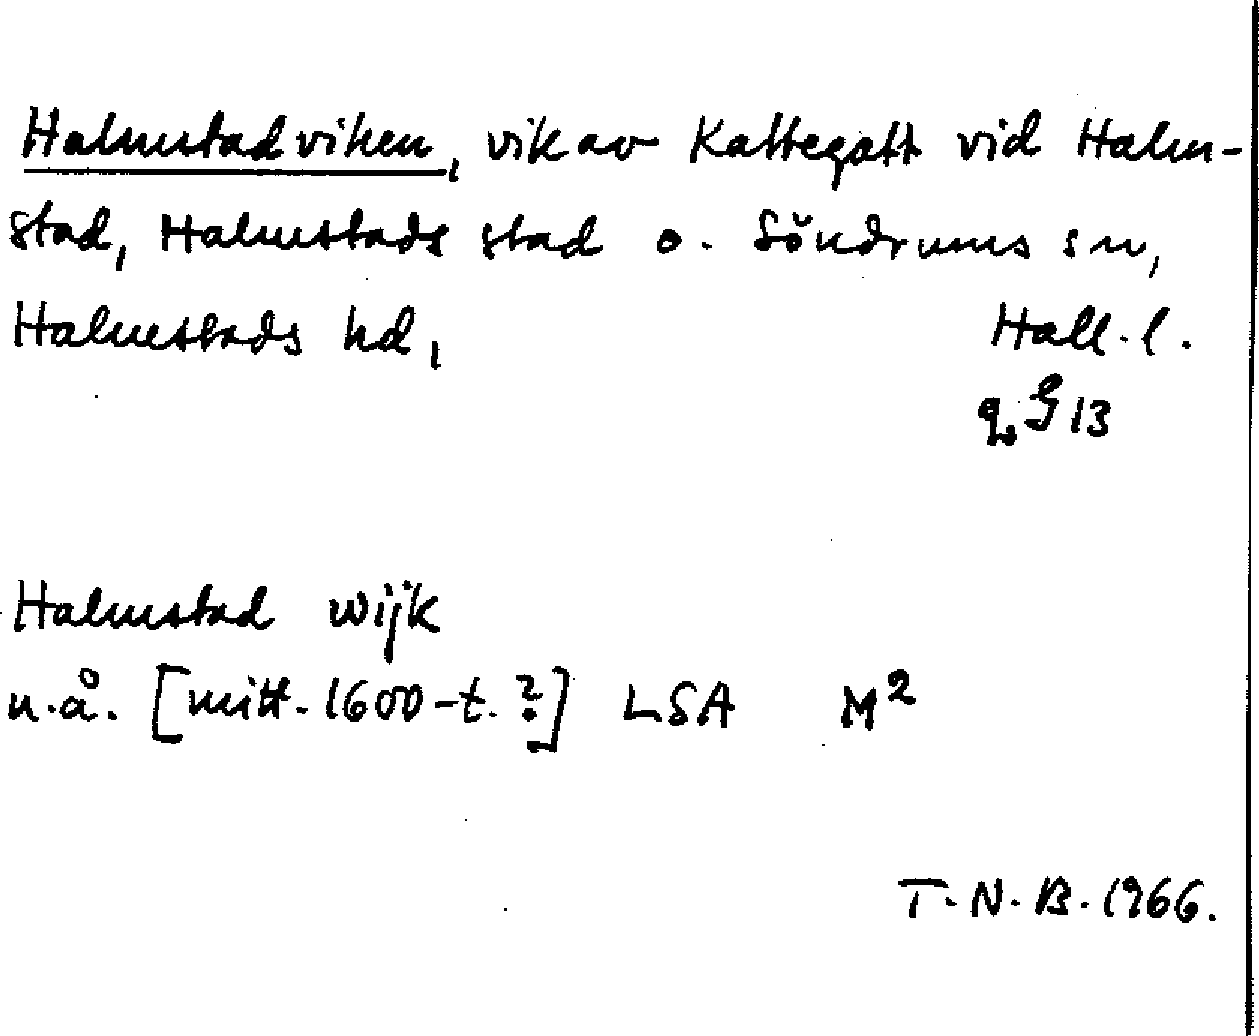 Halmstadviken, vik av Kattegatt vid Halm-
stad, Halmstads stad o. Söndrums sn,
Halmstads hd, Hall. l.
G 13
Halmstad wijk
u.å. [mitt. 1600-t.?] LSA M²
T. N. B. 1966.